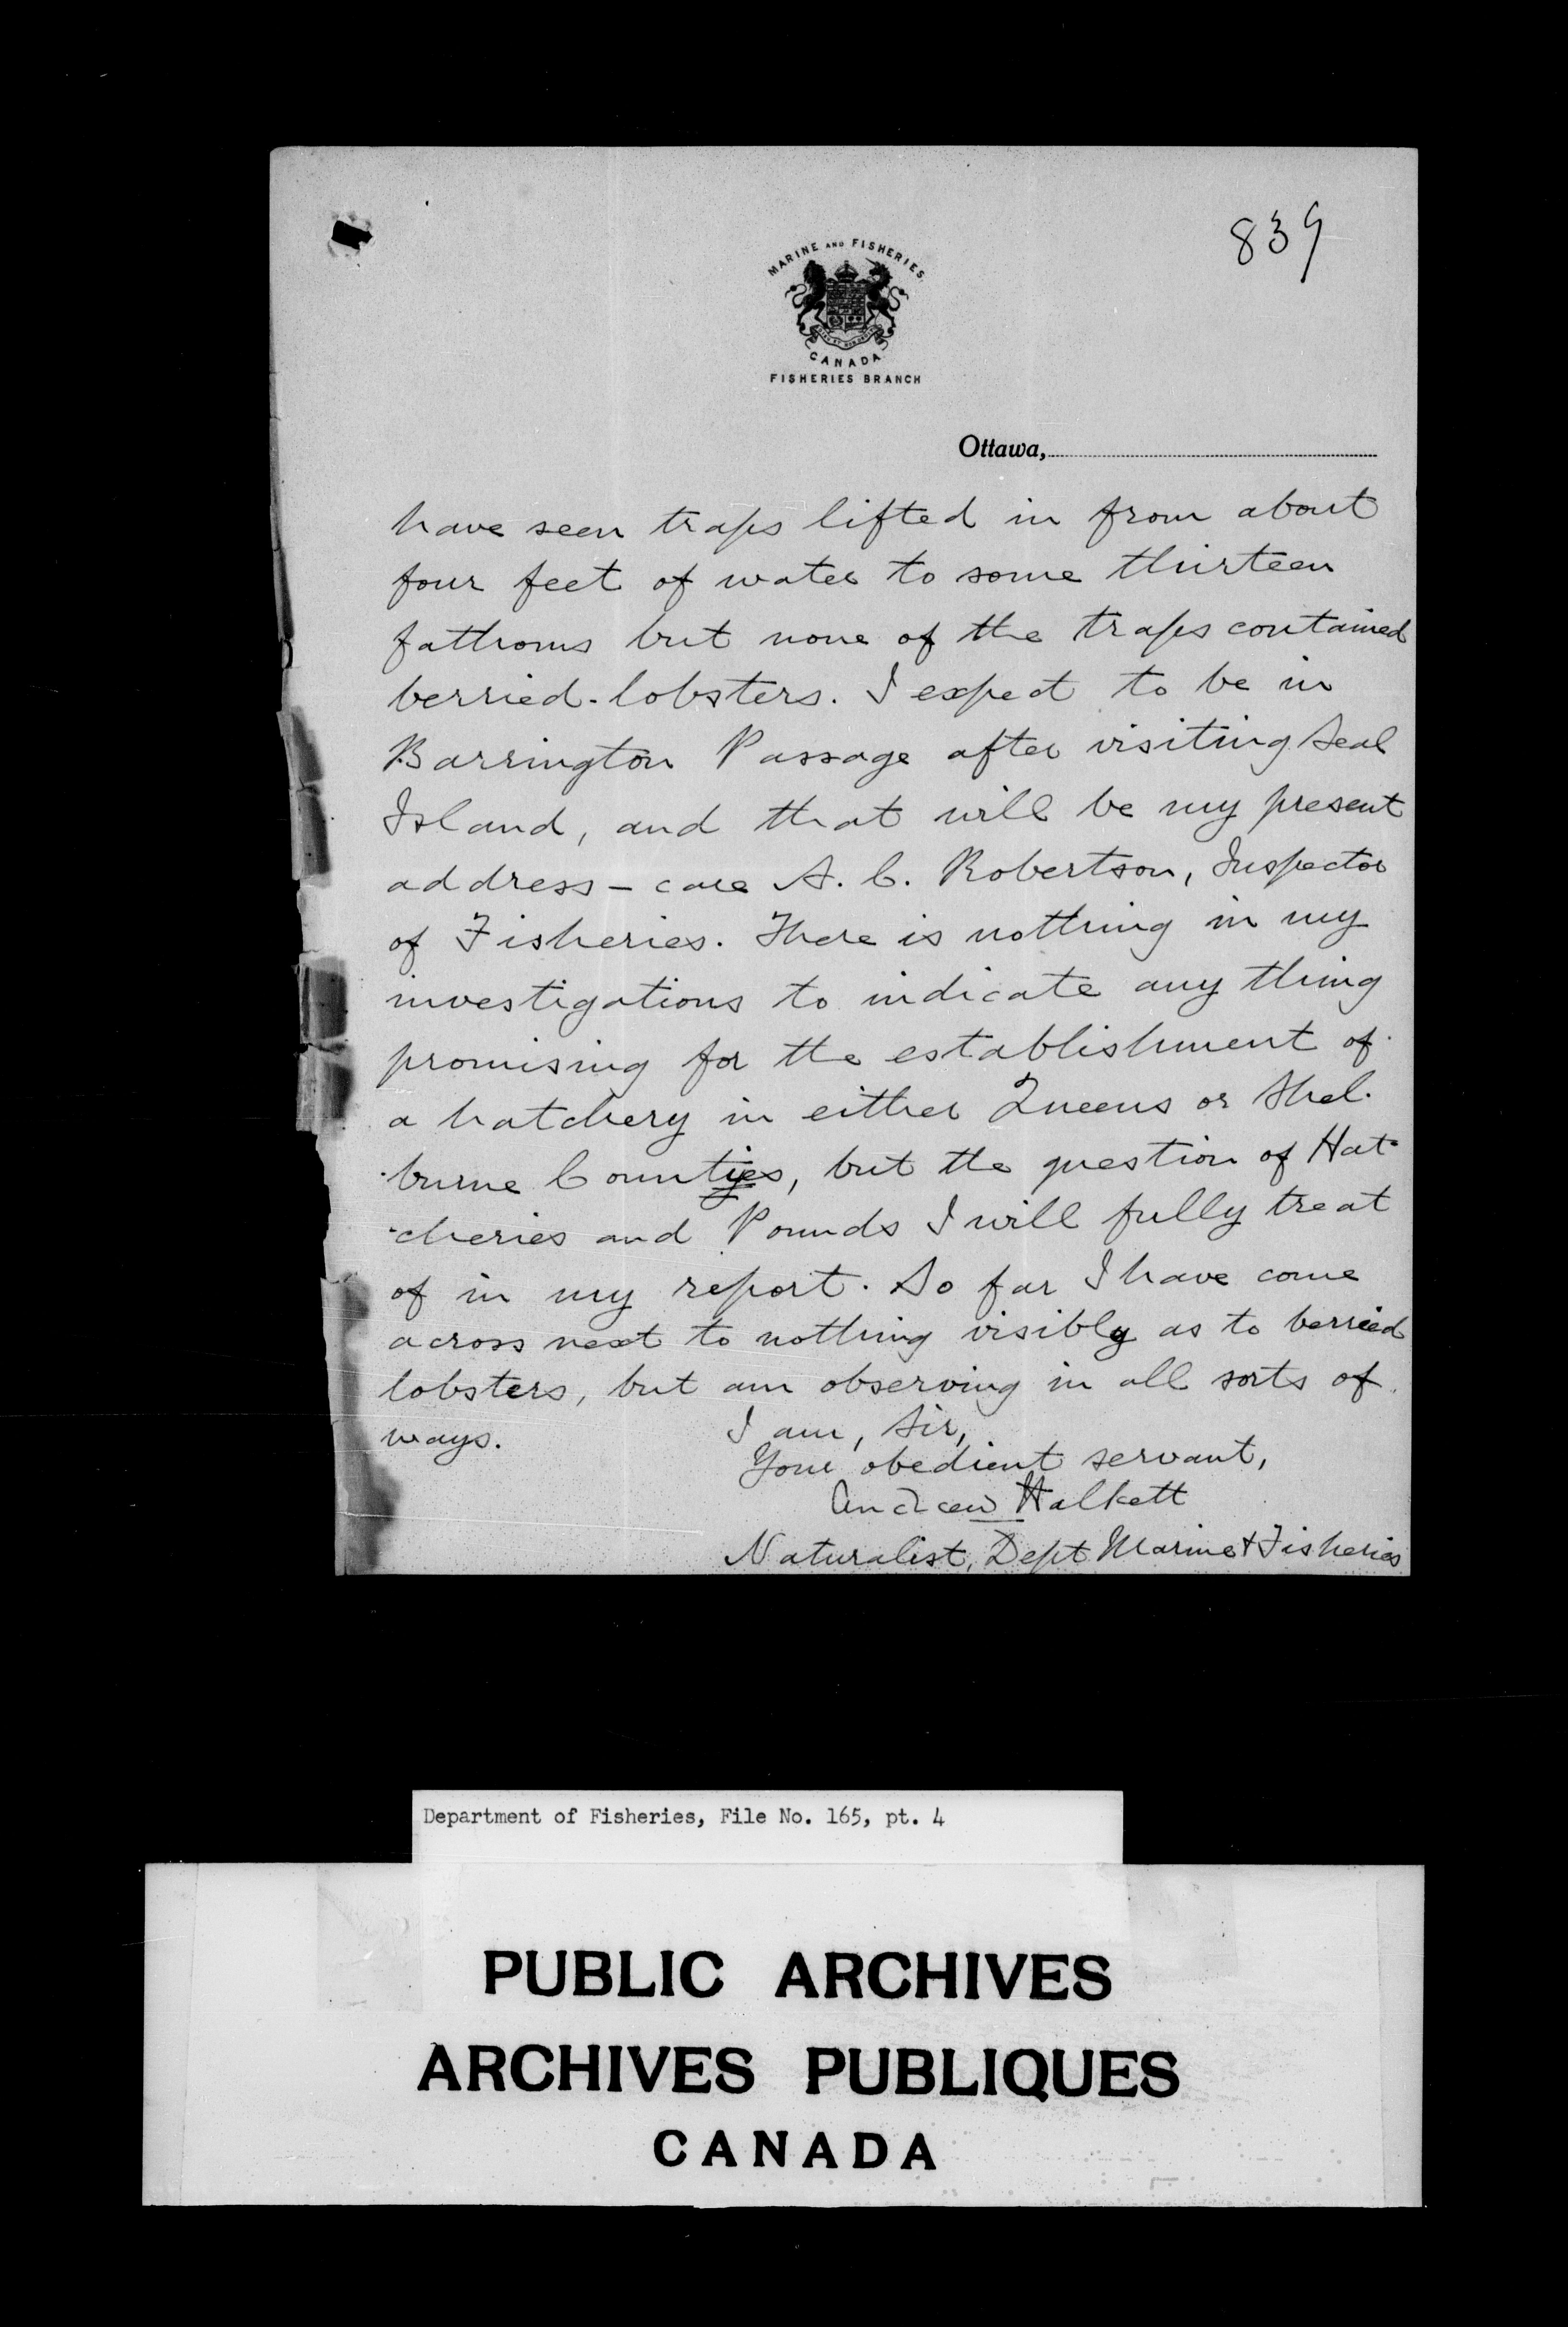 839
MARINE AND FISHERIES.
CANADA
FISHERIES BRANCH
Ottawa,
have seen traps lifted in from about
four feet of water to some thirteen
fathoms but none of the traps contained
berried-lobsters. I expect to be in
Barrington Passage after visiting Seal
Island, and that will be my present
address - care A. C. Robertson, Inspector
of Fisheries. There is nothing in my
investigations to indicate any thing
promising for the establishment of
a hatchery in either Queens or Shel-
-burne Counties, but the question of Hat-
-cheries and Pounds I will fully treat
of in my report. So far I have come
across next to nothing visibly as to berried
lobsters, but am observing in all sorts of
ways.
I am, Sir,
Your obedient servant,
Andrew Halkett
Naturalist, Dept Marine & Fisheries
Department of Fisheries, File No. 165, pt. 4
PUBLIC ARCHIVES
ARCHIVES PUBLIQUES
CANADA